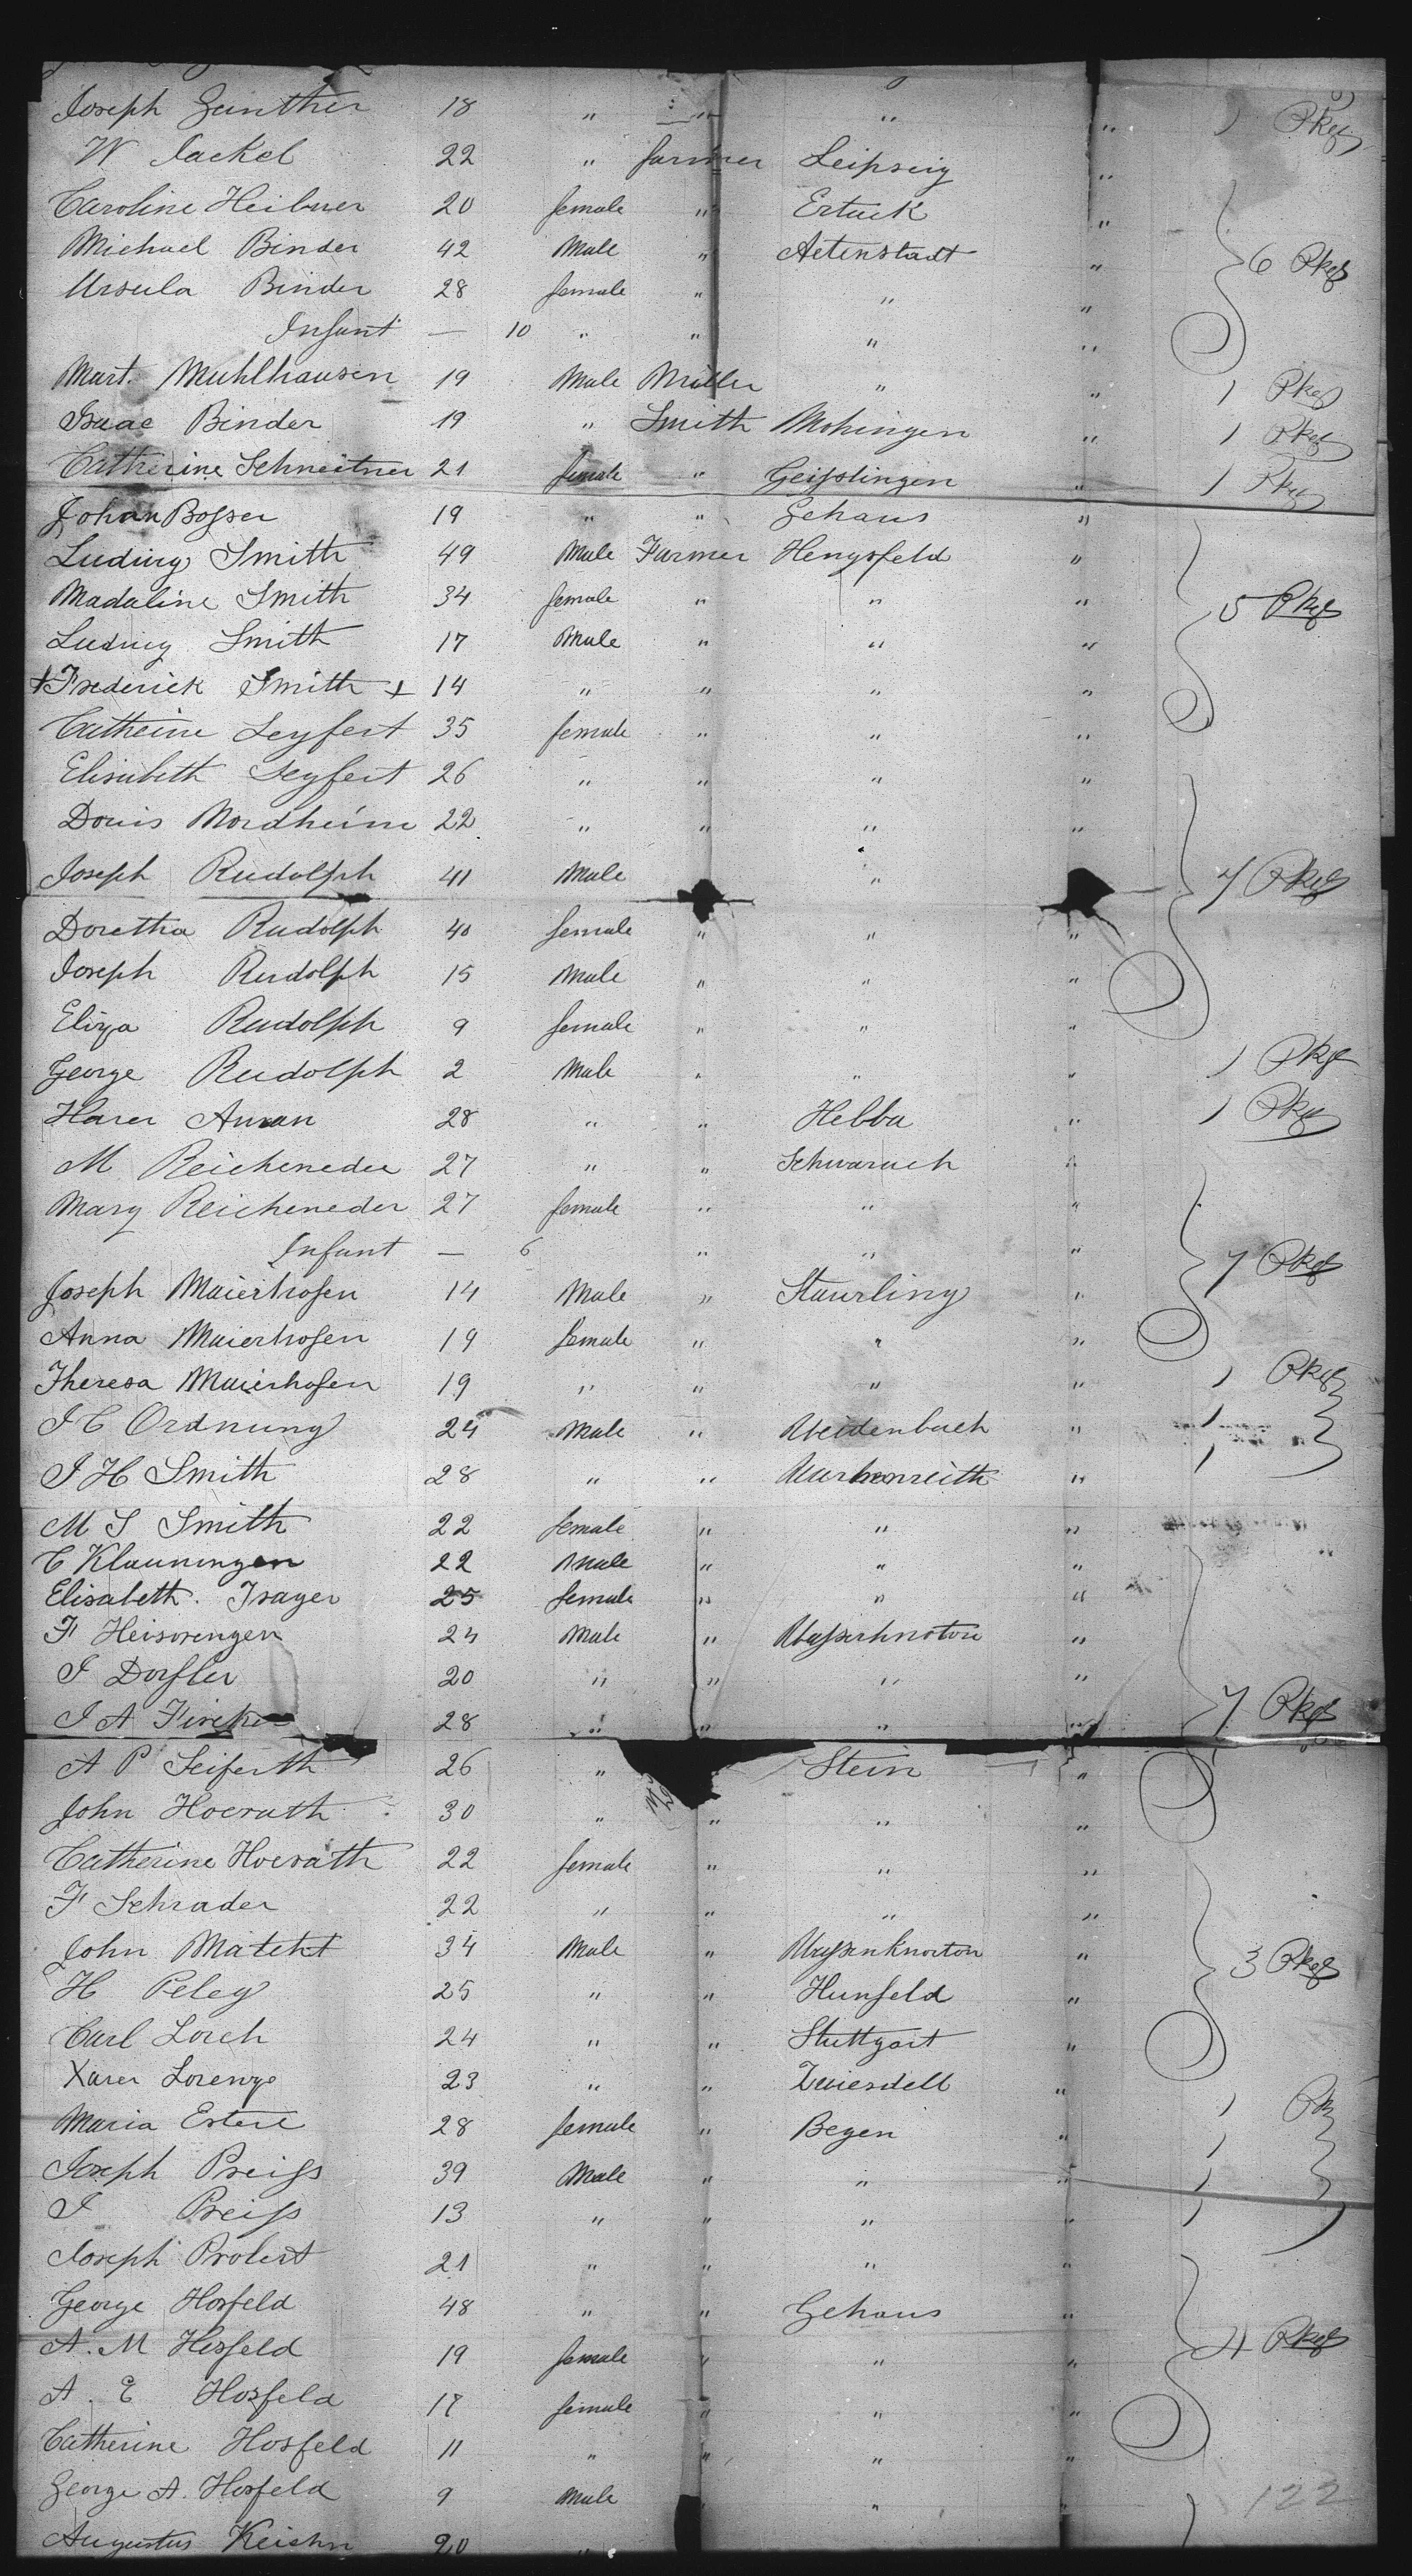 Joseph Gunther 18 " " " " 1 Pkgs
W Jackel 22 " farmer Leipsig "
Caroline Heibner 20 female " Ertuck "
Michael Binder 42 Male " Aetenstadt " 6 Pkgs
Ursula Binder 28 female " " "
Infant — 10 " " " "
Mart. Muhlhausen 19 Male Miller " " 1 Pkgs
Isaac Binder 19 " Smith Mohingen " 1 Pkgs
Catherine Schneitner 21 female " Geisslingen " 1 Pkgs
Johan Bosser 19 " " Gehaus "
Ludwig Smith 49 Male Farmer Hengsfeld "
Madaline Smith 34 female " " " 5 Pkgs
Ludwig Smith 17 Male " " "
+ Frederick Smith + 14 " " " "
Catheine Seyfert 35 female " " "
Elisabeth Seyfert 26 " " " "
Doris Nordheim 22 " " " "
Joseph Rudolph 41 Male " 7 Pkgs
Doretha Rudolph 40 female " " "
Joseph Rudolph 15 Male " " "
Eliza Rudolph 9 female " " "
George Rudolph 2 Male " " " 1 Pkgs
Harer Aman 28 " " Hebba " 1 Pkgs
M Reichenedee 27 " " Schwaruch "
Mary Reicheneder 27 female " " "
Infant — 6 " " " 7 Pkgs
Joseph Maierhofen 14 Male " Staurling "
Anna Maierhofen 19 female " " "
Theresa Maierhofen 19 " " " " 1 Pkgs
J C Ordnung 24 Male " Weidenbach " 1
J H Smith 28 " " " 1
M S Smith 22 female " " "
C Klauningen 22 Male " " "
Elisabeth. Trager 25 female " " "
F Heisrengen 24 Male " "
J Dorfler 20 " " " "
J A 28 " " " " 7 Pkgs
A P Seiferth 26 " Stein "
John Hoerath 30 " " " "
Catherine Hoerath 22 female " " "
F Schrader 22 " " " "
John Matekt 34 Male " " 3 Pkgs
H Peleg 25 " " Hunfeld "
Carl Lorch 24 " " Stuttgart "
Xarer Lorenze 23 " " Zwiesdell " 1 Pk
Maria Estere 28 female " Begen " 1
Joseph Preiss 39 Male " " " 1
J Preiss 13 " " " " 1
Joseph Probert 21 " " " "
George Hosfeld 48 " " Gehaus "
A. M Hesfeld 19 female " " " 4 Pkgs
A. E Hosfeld 17 female " " "
Catherine Hosfeld 11 " " " "
George A. Hosfeld 9 Male " " " 122
Augustus Keichn 20 "